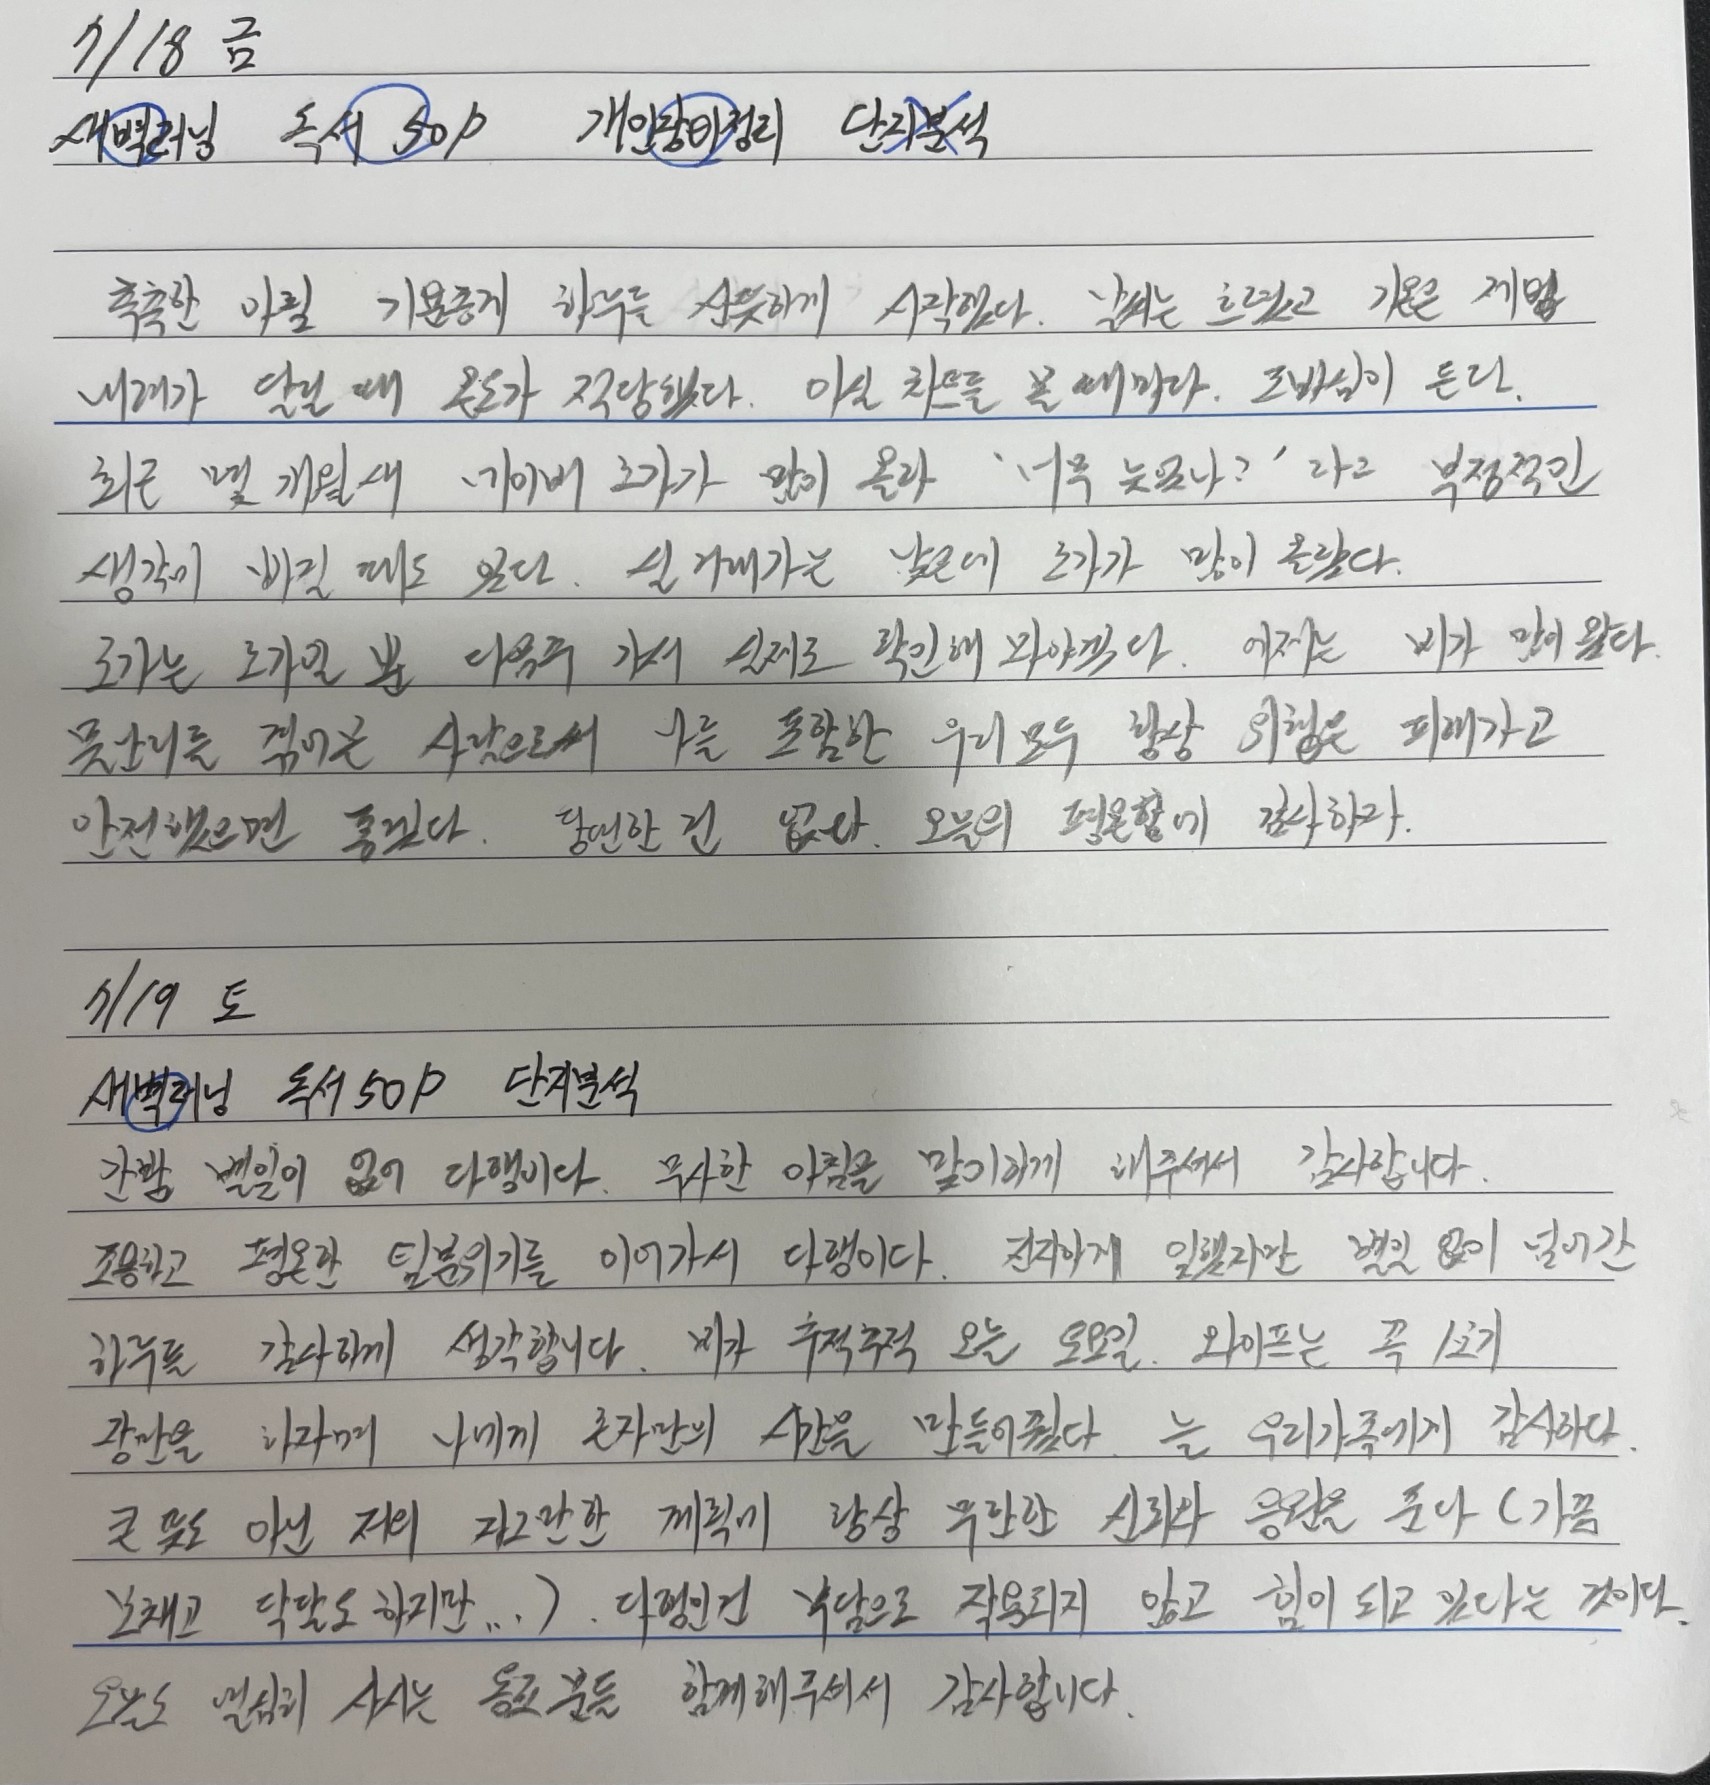 7/18 금
새벽러닝 독서 50p 개인장비정리 단지분석
축축한 아침 기분좋게 하루를 산뜻하게 시작했다. 날씨는 흐렸고 기온은 제법
내려가 달릴 때 온도가 적당했다. 아실 차트를 볼 때마다. 조바심이 든다.
최근 몇 개월새 네이버 호가가 많이 올라 '너무 늦었나?' 라고 부정적인
생각이 빠질 때도 있다. 실거래가는 낮은데 호가가 많이 올랐다.
호가는 호가일 뿐 다음주 가서 실제로 확인해 봐야겠다. 어제는 비가 많이 왔다.
물난리를 겪어본 사람으로써 나를 포함한 우리 모두 항상 위험은 피해가고
안전했으면 좋겠다. 당연한 건 없다. 오늘의 평온함에 감사하자.
7/19 토
새벽러닝 독서 50p 단지분석
간밤 별일이 없어 다행이다. 무사한 아침을 맞이하게 해주셔서 감사합니다.
조용하고 평온한 팀분위기를 이어가서 다행이다. 일했지만 별일 없이 넘어간
하루를 감사하게 생각합니다. 비가 추적추적 오늘 토요일. 와이프는 꼭 1호기
장만을 하자며 나에게 혼자만의 시간을 만들어줬다. 늘 우리가족에게 감사하다.
큰 뜻도 아닌 저의 자그만한 계획에 항상 무한한 신뢰와 응원을 준다 (가끔
보채고 닥달도 하지만...). 다행인건 부담으로 작용되지 않고 힘이 되고 있다는 것이다.
오늘도 열심히 사시는 동료분들 함께해주셔서 감사합니다.